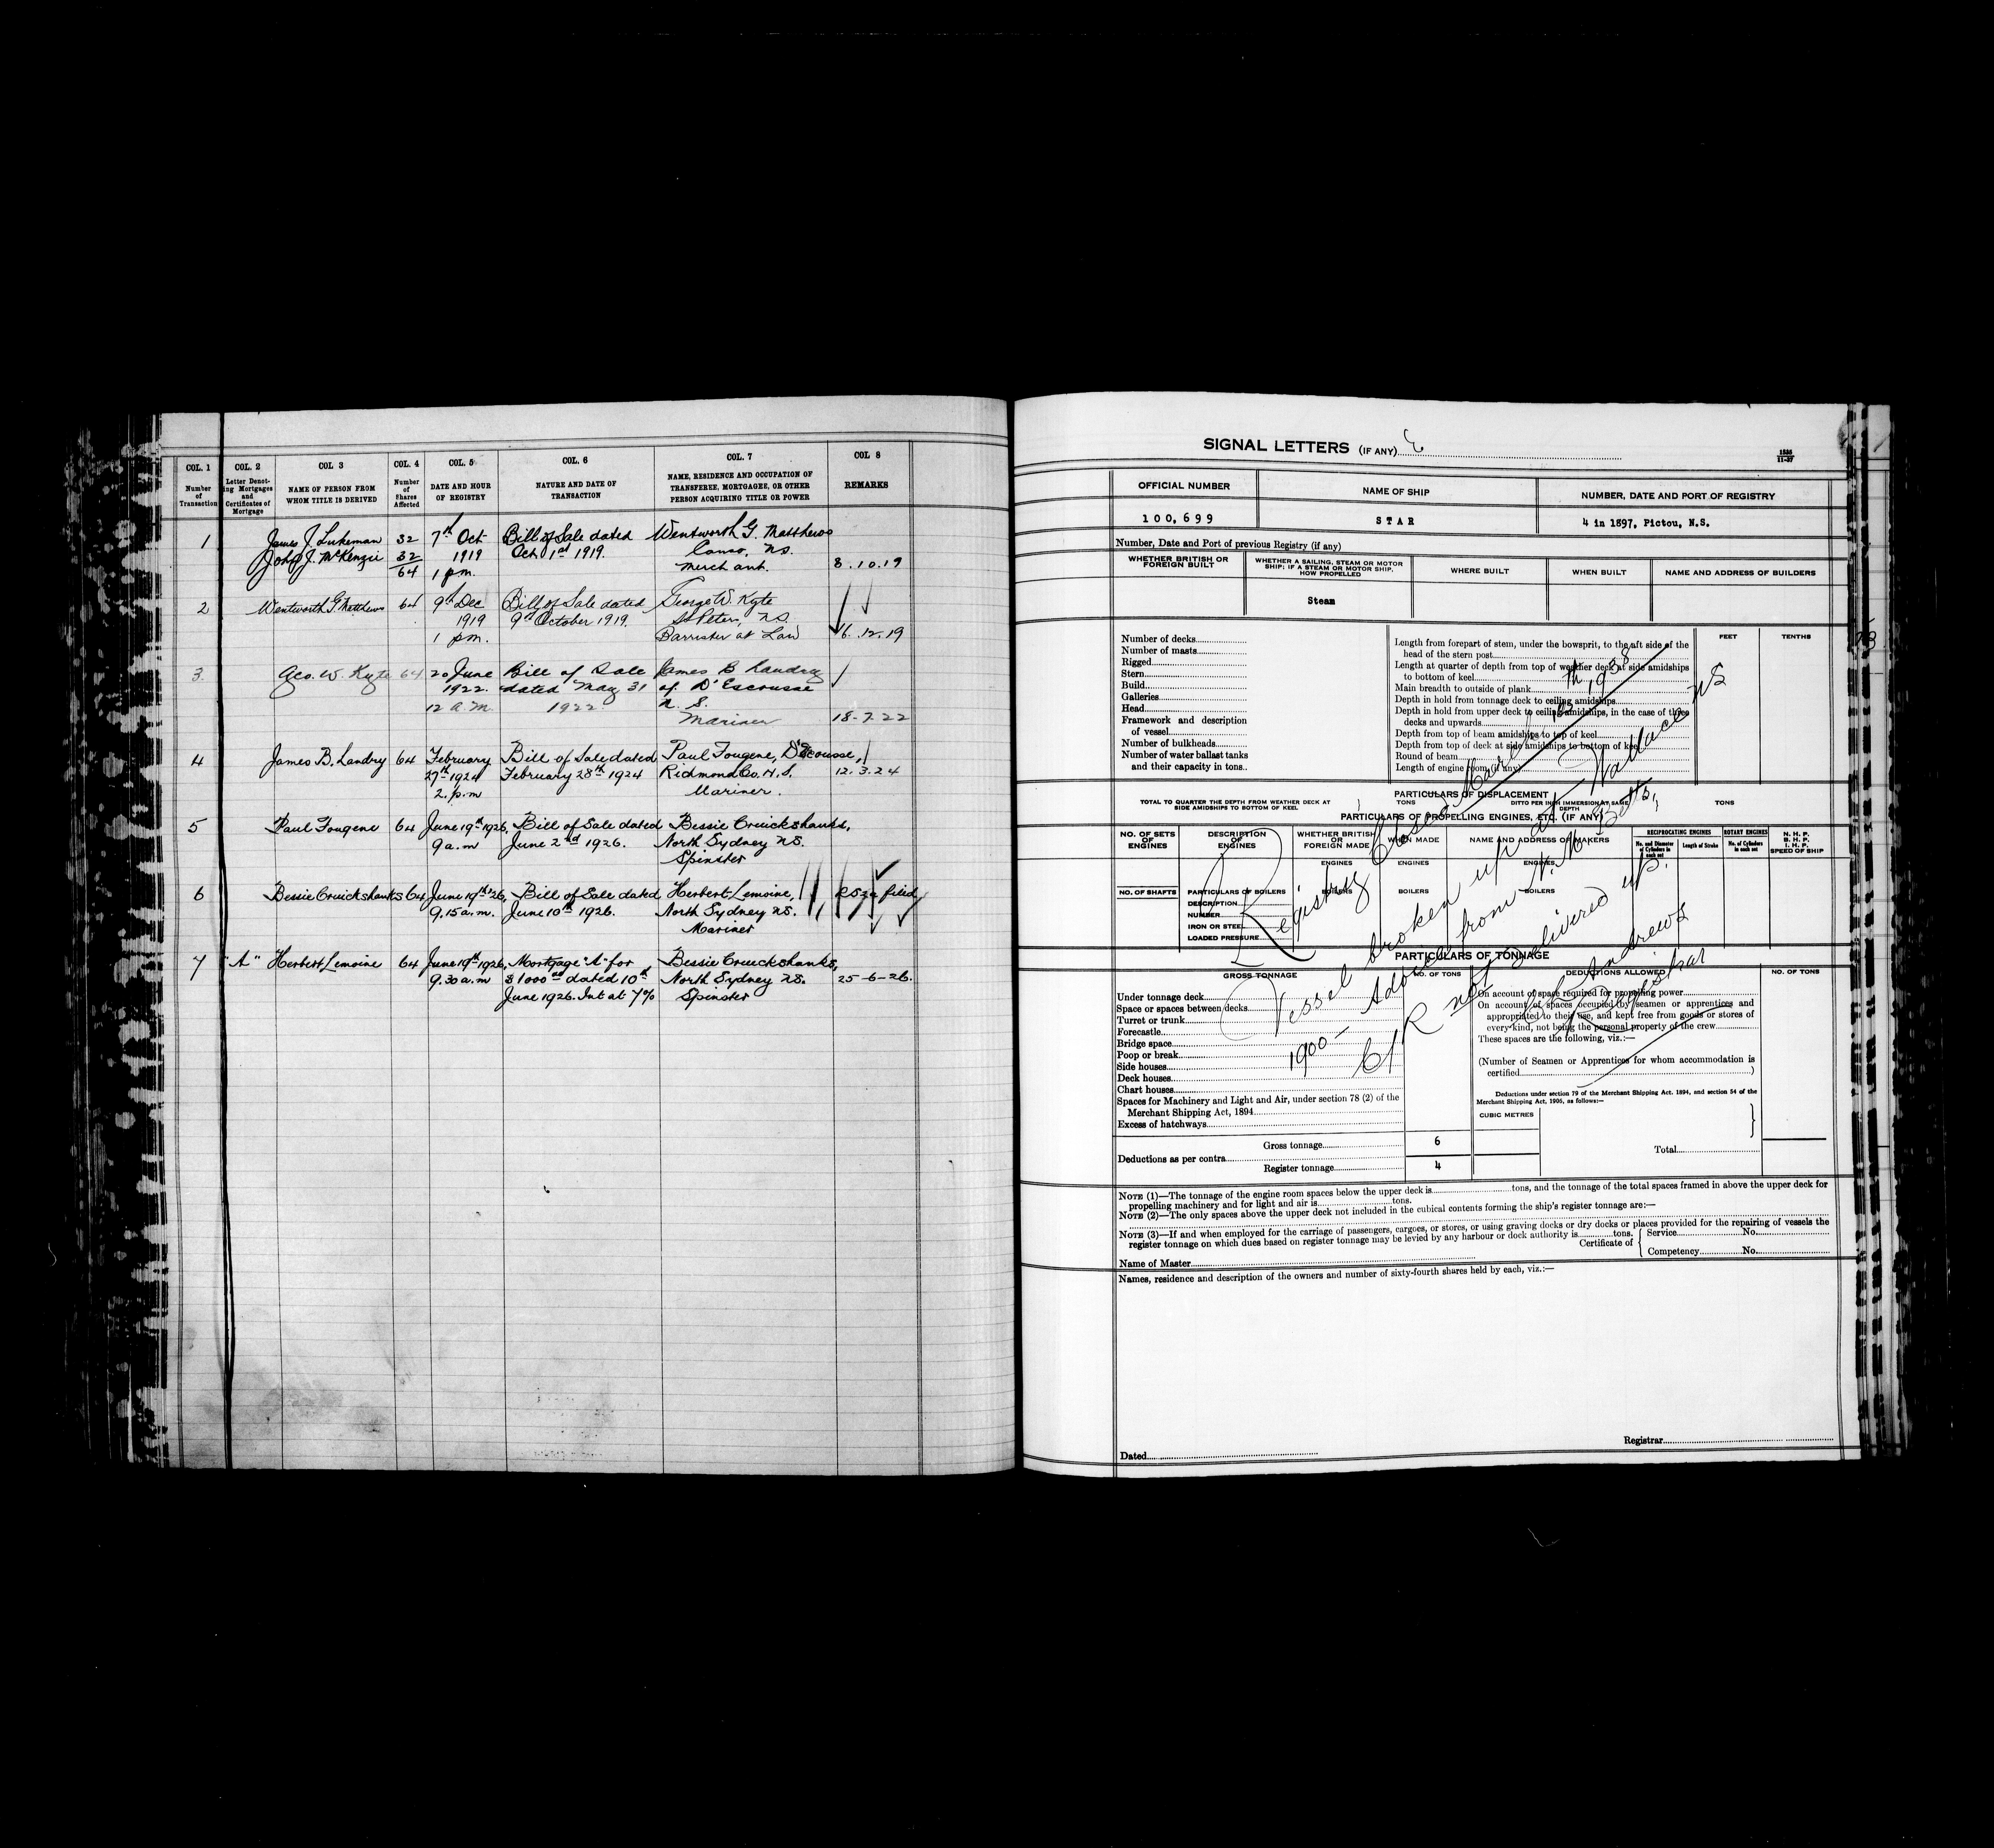 COL. 1 COL. 2 COL 3 COL. 4 COL. 5 COL. 6 COL. 7 COL 8
Number of Transaction
Letter Denoting Mortgages and Certificates of Mortgage
NAME OF PERSON FROM WHOM TITLE IS DERIVED
Number of Shares Affected
DATE AND HOUR OF REGISTRY
NATURE AND DATE OF TRANSACTION
NAME, RESIDENCE AND OCCUPATION OF TRANSFEREE, MORTGAGEE, OR OTHER PERSON ACQUIRING TITLE OR POWER
REMARKS
1 James J. Lukeman 32 7th Oct Bill of Sale dated Wentworth G. Matthews
John J. McKenzie 32 1919 Oct 1st 1919. Canso, NS.
64 1 pm. Merchant. 8.10.19
2 Wentworth G Matthews 64 9th Dec Bill of Sale dated George W. Kyte
1919 9th October 1919. St Peters, NS.
1 pm. Barrister at Law 16.12.19
3. Geo. W. Kyte 64 20 June Bill of Sale James B Landry
1922. dated May 31 of D'Escousse
12 a.m. 1922 N. S.
Mariner 18-7-22
4 James B. Landry 64 February Bill of Sale dated Paul Fougene, D'Escousse,
27th 1924 February 28th 1924 Richmond Co. N.S. 12.3.24
2. p.m Mariner.
5 Paul Fougene 64 June 19th 1926, Bill of Sale dated Bessie Cruickshanks,
9 a.m June 2nd 1926. North Sydney NS.
Spinster
6 Bessie Cruickshanks 64 June 19th 26, Bill of Sale dated Herbert Lemoine, filed
9.15 a.m. June 10th 1926. North Sydney NS.
Mariner
7 "A" Herbert Lemoine 64 June 19th 1926, Mortgage "A" for Bessie Cruickshanks,
9.30 a.m $1000 dated 10th North Sydney NS. 25-6-26.
June 1926. Int at 7% Spinster
SIGNAL LETTERS (IF ANY)
OFFICIAL NUMBER NAME OF SHIP NUMBER, DATE AND PORT OF REGISTRY
100,699 STAR 4 in 1897, Pictou, N.S.
Number, Date and Port of previous Registry (if any)
WHETHER BRITISH OR FOREIGN BUILT
WHETHER A SAILING, STEAM OR MOTOR SHIP; IF A STEAM OR MOTOR SHIP, HOW PROPELLED
WHERE BUILT WHEN BUILT NAME AND ADDRESS OF BUILDERS
Steam
Number of decks
Number of masts
Rigged
Stern
Build
Galleries
Head
Framework and description
of vessel
Number of bulkheads
Number of water ballast tanks
and their capacity in tons
FEET TENTHS
Length from forepart of stem, under the bowsprit, to the aft side of the
head of the stern post
Length at quarter of depth from top of weather deck at side amidships
to bottom of keel
Main breadth to outside of plank
Depth in hold from tonnage deck to ceiling amidships
Depth in hold from upper deck to ceiling amidships, in the case of three
decks and upwards
Depth from top of beam amidships to top of keel
Depth from top of deck at side amidships to bottom of keel
Round of beam
Length of engine room (if any)
PARTICULARS OF DISPLACEMENT
TOTAL TO QUARTER THE DEPTH FROM WEATHER DECK AT SIDE AMIDSHIPS TO BOTTOM OF KEEL TONS
DITTO PER INCH IMMERSION AT SAME DEPTH TONS
PARTICULARS OF PROPELLING ENGINES, ETC. (IF ANY)
NO. OF SETS OF ENGINES
DESCRIPTION OF ENGINES
WHETHER BRITISH OR FOREIGN MADE
WHEN MADE
NAME AND ADDRESS OF MAKERS
RECIPROCATING ENGINES
No. and Diameter of Cylinders in each set
Length of Stroke
ROTARY ENGINES
No. of Cylinders in each set
N. H. P.
B. H. P.
I. H. P.
SPEED OF SHIP
ENGINES ENGINES ENGINES
NO. OF SHAFTS
PARTICULARS OF BOILERS BOILERS BOILERS BOILERS
DESCRIPTION
NUMBER
IRON OR STEEL
LOADED PRESSURE
Registry Closed March 1938
Vessel broken up at Wallace NS
1900 - Advice from N. M. Betts,
C/R not delivered up.
Andrews
Registrar
PARTICULARS OF TONNAGE
GROSS TONNAGE NO. OF TONS DEDUCTIONS ALLOWED NO. OF TONS
Under tonnage deck
Space or spaces between decks
Turret or trunk
Forecastle
Bridge space
Poop or break
Side houses
Deck houses
Chart houses
Spaces for Machinery and Light and Air, under section 78 (2) of the
Merchant Shipping Act, 1894
Excess of hatchways
Gross tonnage 6
Deductions as per contra
Register tonnage 4
On account of space required for propelling power
On account of spaces occupied by seamen or apprentices and
appropriated to their use, and kept free from goods or stores of
every kind, not being the personal property of the crew
These spaces are the following, viz.:—
(Number of Seamen or Apprentices for whom accommodation is
certified )
Deductions under section 79 of the Merchant Shipping Act. 1894, and section 54 of the
Merchant Shipping Act, 1906, as follows:—
CUBIC METRES
Total
NOTE (1)—The tonnage of the engine room spaces below the upper deck is tons, and the tonnage of the total spaces framed in above the upper deck for
propelling machinery and for light and air is tons.
NOTE (2)—The only spaces above the upper deck not included in the cubical contents forming the ship's register tonnage are:—
NOTE (3)—If and when employed for the carriage of passengers, cargoes, or stores, or using graving docks or dry docks or places provided for the repairing of vessels the
register tonnage on which dues based on register tonnage may be levied by any harbour or dock authority is tons.
Certificate of { Service No.
Competency No.
Name of Master
Names, residence and description of the owners and number of sixty-fourth shares held by each, viz.:—
Registrar
Dated